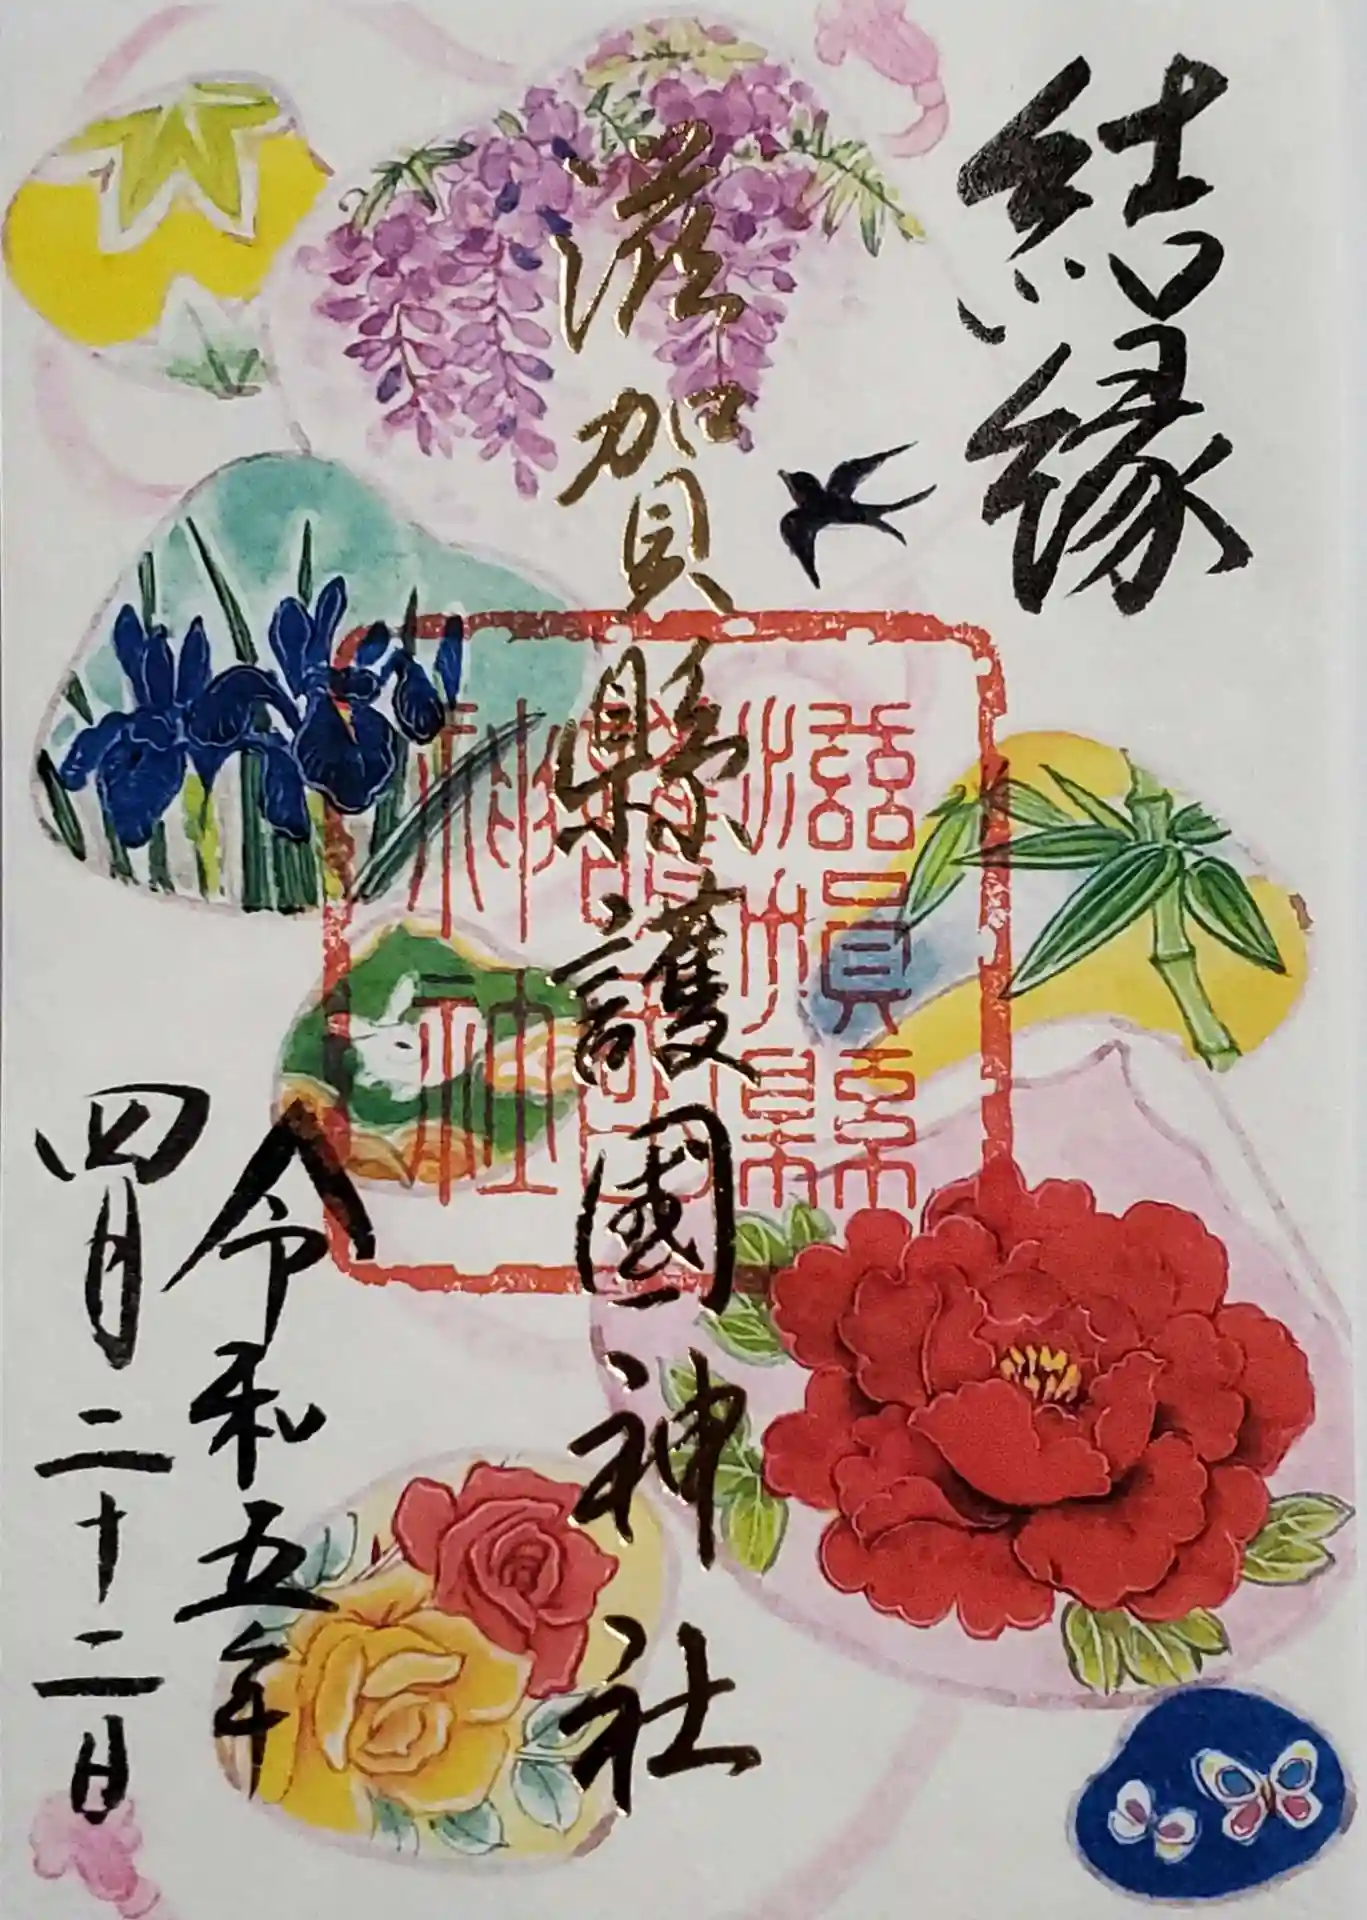 結縁
滋賀縣護國神社
滋賀縣
護國
神社
令和五年
四月二十二日